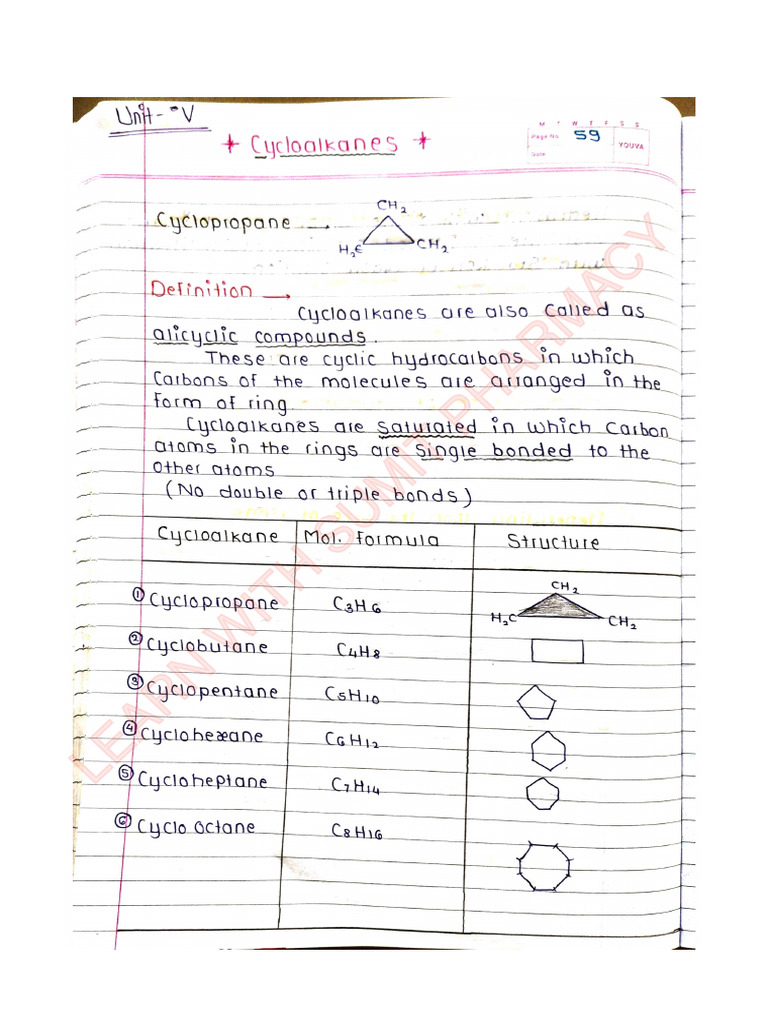 Unit-V
M T W T F S S
Page No. 59
Date
YOUVA
* Cycloalkanes *
Cyclopropane →
CH₂
H₂C CH₂
Definition →
Cycloalkanes are also called as
alicyclic compounds.
These are cyclic hydrocarbons in which
Carbons of the molecules are arranged in the
form of ring.
Cycloalkanes are saturated in which carbon
atoms in the rings are single bonded to the
other atoms
(No double or triple bonds)
Cycloalkane Mol. formula Structure
① Cyclopropane C₃H₆
CH₂
H₂C CH₂
② Cyclobutane C₄H₈
③ Cyclopentane C₅H₁₀
④ Cyclohexane C₆H₁₂
⑤ Cycloheptane C₇H₁₄
⑥ Cyclo octane C₈H₁₆
LEARN WITH SUMIT PHARMACY